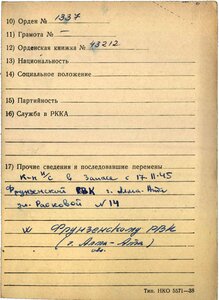 10) Орден № 1337
11) Грамота № —
12) Орденская книжка № 43212
13) Национальность
14) Социальное положение
15) Партийность
16) Служба в РККА
17) Прочие сведения и последовавшие перемены
К-н и/с в запасе с 17.11.45
Фрунзенский РВК г. Алма-Ата
ул. Расковой № 14
Фрунзенскому РВК
(г. Алма-Ата)
Тип. НКО 5571—38